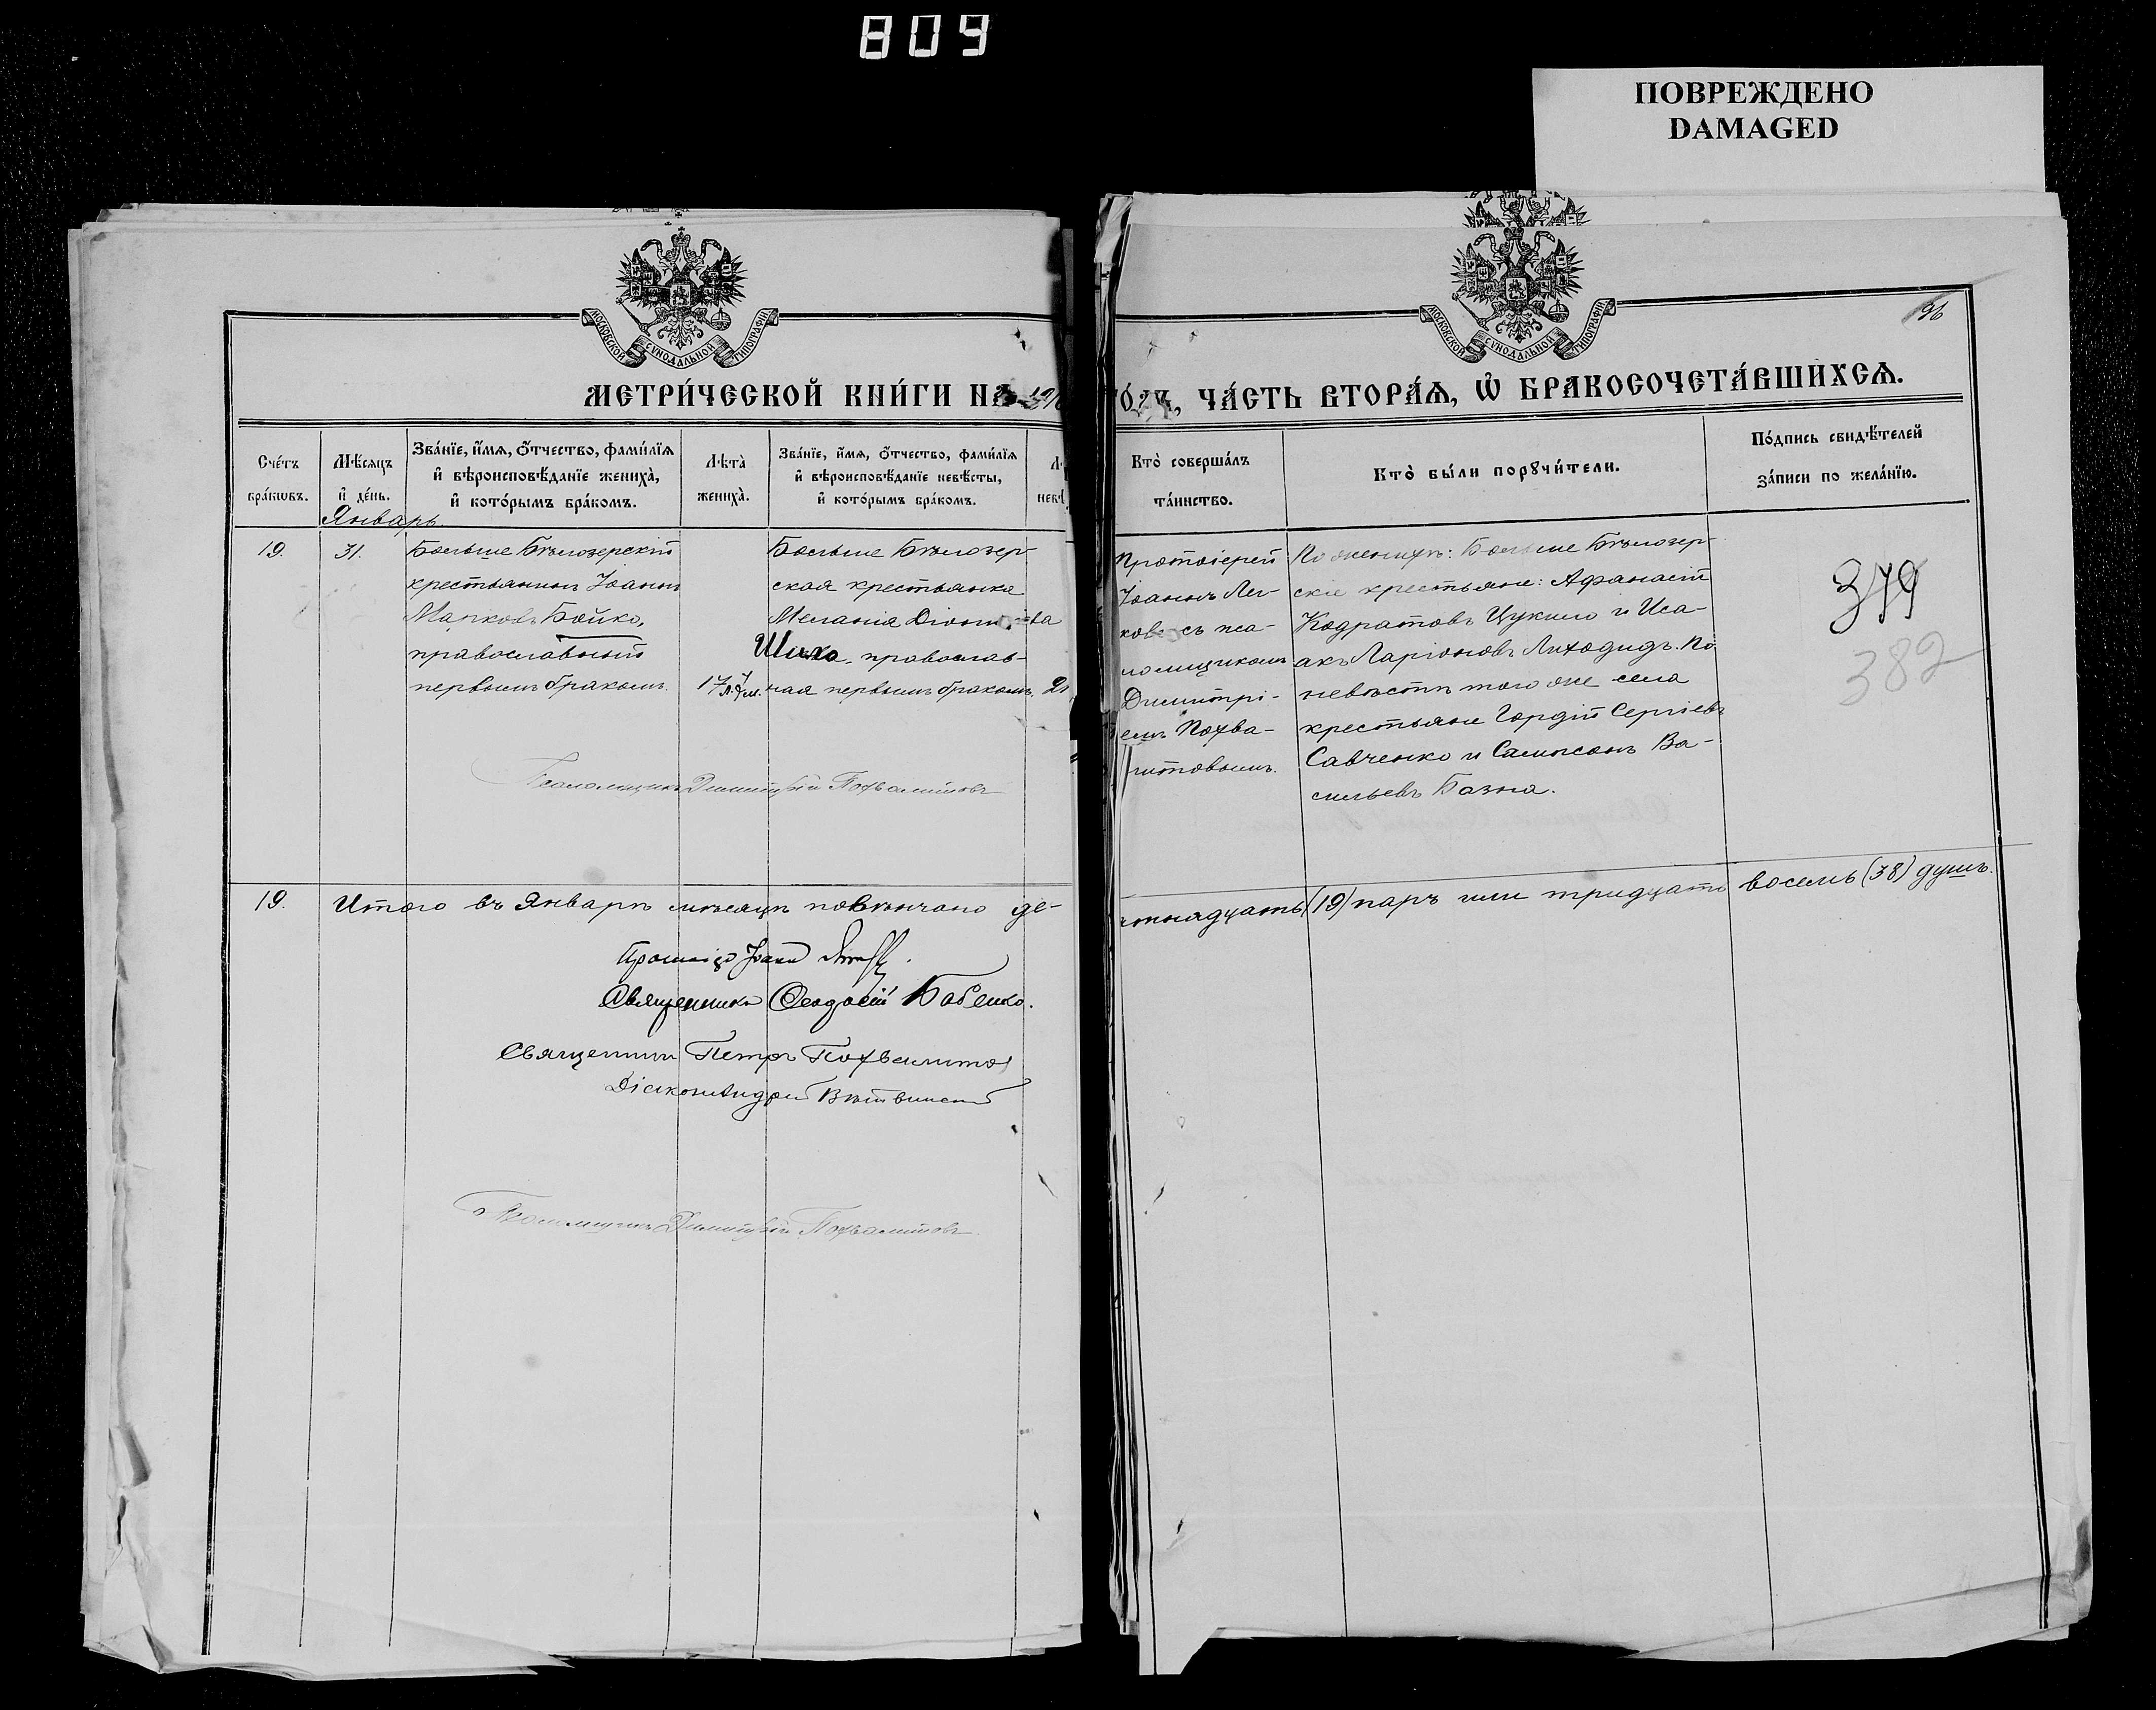 809
ПОВРЕЖДЕНО
DAMAGED
МОСКОВСКОЙ СѴНОДАЛЬНОЙ ТИПОГРАФІИ
МОСКОВСКОЙ СѴНОДАЛЬНОЙ ТИПОГРАФІИ
196
МЕТРИ́ЧЕСКОЙ КНИ́ГИ НА
ГО́ДЪ, ЧА́СТЬ ВТОРА́Я, Ѡ БРАКОСОЧЕТА́ВШИХСЯ.
Сче́тъ
бра́кѡвъ.
Мѣ́сяцъ
и҆ де́нь.
Зва́нїе, и҆́мѧ, ѻ҆́тчество, фами́лїѧ
и҆ вѣроисповѣ́данїе жениха̀,
и҆ кото́рымъ бра́комъ.
Лѣта̀
жениха̀.
Зва́нїе, и҆́мѧ, ѻ҆́тчество, фами́лїѧ
и҆ вѣроисповѣ́данїе невѣ́сты,
и҆ кото́рымъ бра́комъ.
Кто̀ соверша́лъ
та́инство.
Кто̀ бы́ли порꙋчи́тели.
По́дпись свидѣ́телей
за́писи по жела́нїю.
Январь
19.
31.
Больше Бѣлозерскій
крестьянинъ Іоаннъ
Марковъ Бойко,
православный
первымъ бракомъ.
17 л. 7 м.
Больше Бѣлозер-
ская крестьянка
Меланія
Шихо, православ-
ная первымъ бракомъ.
Протоіерей
Іоаннъ
съ пса-
ломщикомъ
Димитрі-
емъ Похва-
литовымъ.
По женихѣ: Больше Бѣлозер-
скіе крестьяне: Афанасій
Кодратовъ Цукило и Иса-
акъ Ларіоновъ Лиходидъ. По
невѣстѣ того же села
крестьяне Гордій Сергіевъ
Савченко и Сампсонъ Ва-
сильевъ Базна.
379
382
Псаломщикъ Димитрій Похвалитовъ
19.
Итого въ Январѣ мѣсяцѣ повѣнчано де-
вятнадцать (19) паръ или тридцать восемь (38) душъ.
Іоаннъ
Священникъ Ѳеодосій Бабенко.
Священникъ Петръ Похвалитов
Діаконъ Андрей
Псаломщикъ Димитрій Похвалитовъ